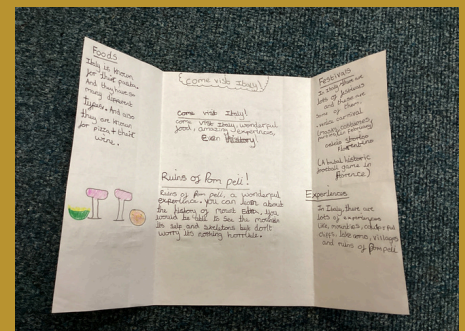 Foods
Italy is known
for their pasta.
And they have so
many different
types. And also
they are known
for pizza + their
wine.
Come visit Italy!
Come visit Italy!
come visit Italy, wonderful
food, amazing experiences,
Even history!
Ruins of Pompeii!
Ruins of Pompeii, a wonderful
experience. you can learn about
the history of mount You
would be able to see the
its and skeletons but don't
worry its nothing horrible.
Festivals
In Italy there are
lots of festivals
and these are
some of them.
carnival
(masks, costumes,
calcio storico
fiorentino
(A historic
football game in
florence)
Experiences
In Italy, there are
lots of experiences
like, colourful
cliffs, villages
and ruins of pompeii